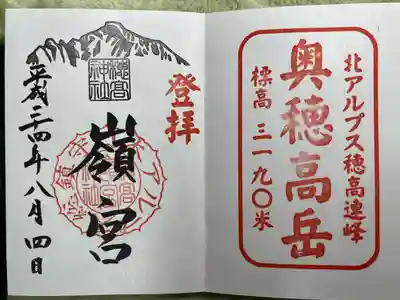 北アルプス穂高連峰
奥穂高岳
標高 三一九〇米
登拝
穂高神社
嶺宮
平成二四年八月四日